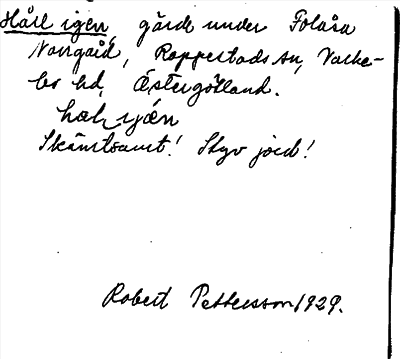 Håll igen, gärde under Folåsa
Norrgård, Rappestads sn, Valke-
bo hd, Östergötland.
Skämtsamt! Styv jord!
Robert Pettersson 1929.